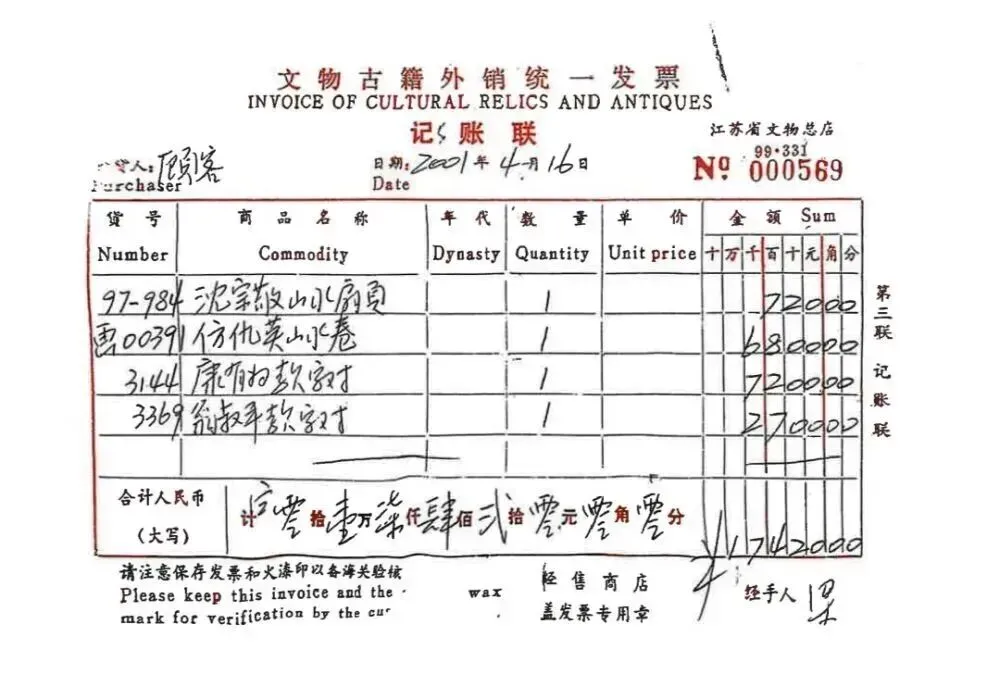 文物古籍外销统一发票
INVOICE OF CULTURAL RELICS AND ANTIQUES
记账联
江苏省文物总店
99·331
货人:顾客
Purchaser
日期:2001年4月16日
Date
Nº 000569
货号 商品名称 年代 数量 单价 金额 Sum
Number Commodity Dynasty Quantity Unit price 十万千百十元角分
97-984 沈宗敬山水扇頁 1 72000
画00391 仿仇英山水卷 1 680000
3144 康有为款字对 1 720000
3369 翁叔平款字对 1 270000
合计人民币
(大写)
计零拾壹万柒仟肆佰贰拾零元零角零分
¥1742000
第三联 记账联
请注意保存发票和火漆印以备海关验核
Please keep this invoice and the wax
mark for verification by the cus
经售商店
盖发票专用章
经手人